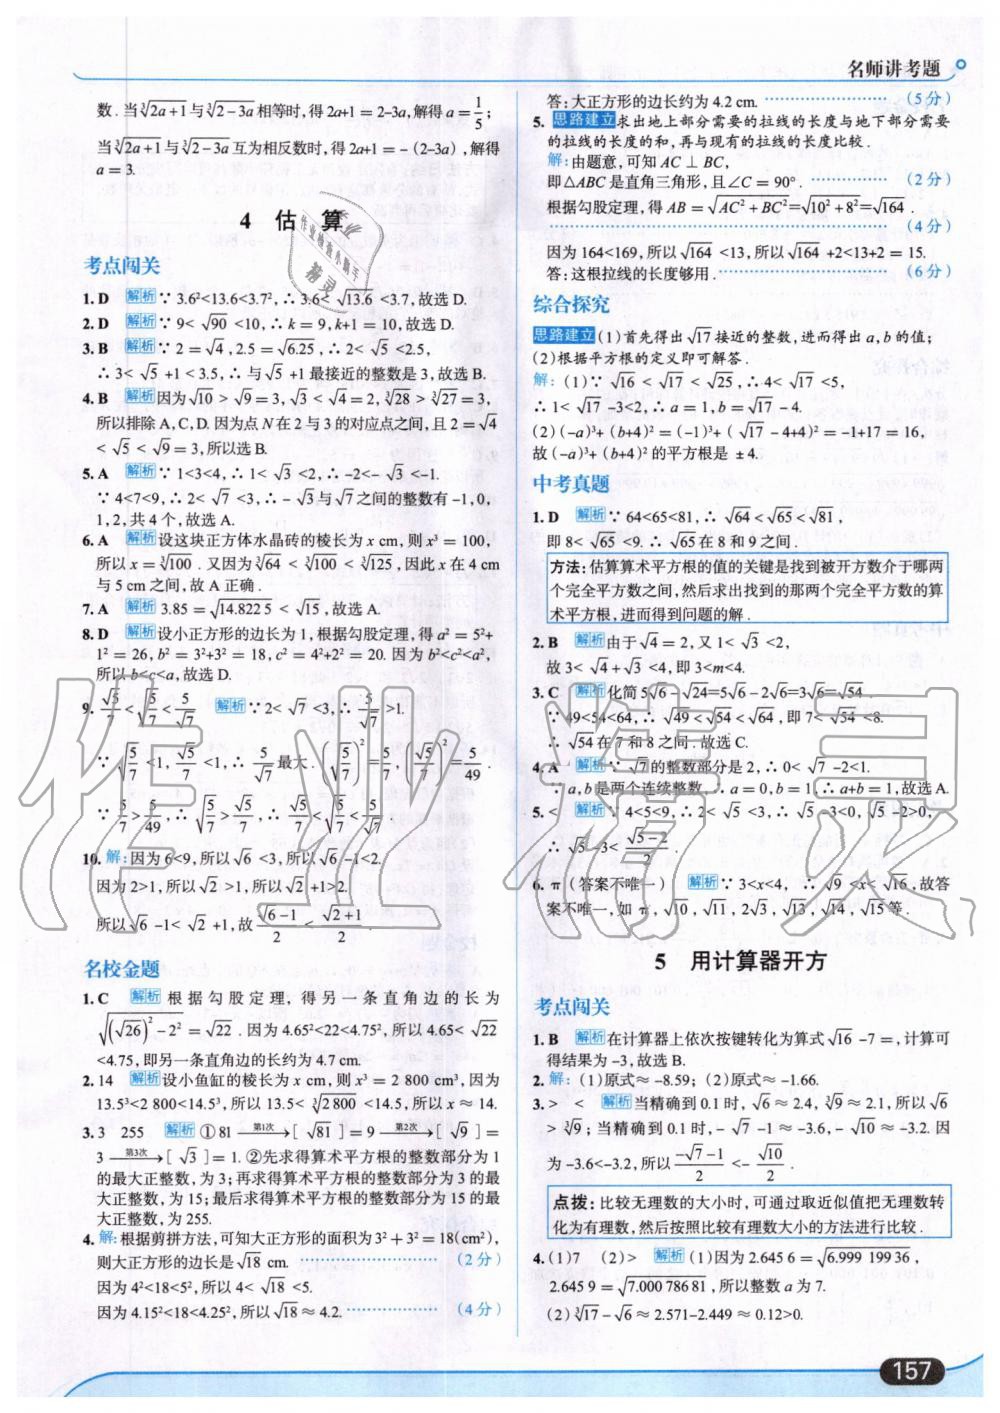 名师讲考题
数. 当∛(2a+1)与∛(2-3a)相等时,得 2a+1 = 2-3a,解得 a = 1/5;
当∛(2a+1)与∛(2-3a)互为相反数时,得 2a+1 = -(2-3a),解得
a = 3.
4 估 算
考点闯关
1. D 解析 ∵ 3.6²<13.6<3.7², ∴ 3.6<√13.6<3.7,故选 D.
2. D 解析 ∵ 9<√90<10, ∴ k = 9, k+1 = 10,故选 D.
3. B 解析 ∵ 2 = √4, 2.5 = √6.25, ∴ 2<√5<2.5,
∴ 3<√5+1<3.5, ∴ 与√5+1 最接近的整数是 3,故选 B.
4. B 解析 因为√10>√9=3, √3<√4=2, ∛28>∛27=3,
所以排除 A,C,D. 因为点 N 在 2 与 3 的对应点之间,且 2=√4
<√5<√9=3,所以选 B.
5. A 解析 ∵ 1<3<4, ∴ 1<√3<2, ∴ -2<-√3<-1.
∵ 4<7<9, ∴ 2<√7<3, ∴ -√3与√7之间的整数有-1,0,
1,2,共 4 个,故选 A.
6. A 解析 设这块正方体水晶砖的棱长为 x cm,则 x³ = 100,
所以 x = ∛100. 又因为∛64<∛100<∛125,因此 x 在 4 cm
与 5 cm 之间,故 A 正确.
7. A 解析 3.85 = √14.822 5<√15,故选 A.
8. D 解析 设小正方形的边长为 1,根据勾股定理,得 a² = 5²+
1² = 26, b² = 3²+3² = 18, c² = 4²+2² = 20. 因为 b²<c²<a²,
所以 b<c<a,故选 D.
9. √5/7<√(5/7)<5/√7 解析 ∵ 2<√7<3, ∴ 5/√7>1.
∵ √(5/7)<1, √5/7<1, ∴ 5/√7最大. (√(5/7))² = 5/7, (√5/7)² = 5/49.
∵ 5/7>5/49, ∴ √(5/7)>√5/7, ∴ √5/7<√(5/7)<5/√7.
10. 解:因为 6<9,所以√6<3,所以√6-1<2.
因为 2>1,所以√2>1,所以√2+1>2.
所以√6-1<√2+1,故(√6-1)/2<(√2+1)/2.
名校金题
1. C 解析 根据勾股定理,得另一条直角边的长为
√((√26)²-2²) = √22. 因为 4.65²<22<4.75²,所以 4.65<√22
<4.75,即另一条直角边的长约为 4.7 cm.
2. 14 解析 设小鱼缸的棱长为 x cm,则 x³ = 2 800 cm³,因为
13.5³<2 800<14.5³,所以 13.5<∛2 800<14.5,所以 x≈14.
3. 3 255 解析 ①81 第1次→[√81] = 9 第2次→[√9] =
3 第3次→[√3] = 1. ②先求得算术平方根的整数部分为 1
的最大正整数,为 3;再求得算术平方根的整数部分为 3 的最
大正整数,为 15;最后求得算术平方根的整数部分为 15 的最
大正整数,为 255.
4. 解:根据剪拼方法,可知大正方形的面积为 3²+3² = 18(cm²),
则大正方形的边长是√18 cm. ………………(2 分)
因为 4²<18<5²,所以 4<√18<5.
因为 4.15²<18<4.25²,所以√18≈4.2. ………………(4 分)
答:大正方形的边长约为 4.2 cm. ………………(5 分)
5. 思路建立 求出地上部分需要的拉线的长度与地下部分需要
的拉线的长度的和,再与现有的拉线的长度比较.
解:由题意,可知 AC⊥BC,
即△ABC 是直角三角形,且∠C = 90°. ………………(2 分)
根据勾股定理,得 AB = √(AC²+BC²) = √(10²+8²) = √164.
………………(4 分)
因为 164<169,所以√164<13,所以√164+2<13+2 = 15.
答:这根拉线的长度够用. ………………(6 分)
综合探究
思路建立 (1)首先得出√17接近的整数,进而得出 a,b 的值;
(2)根据平方根的定义即可解答.
解:(1)∵ √16<√17<√25, ∴ 4<√17<5,
∴ 1<√17-3<2, ∴ a = 1, b = √17-4.
(2)(-a)³+(b+4)² = (-1)³+(√17-4+4)² = -1+17 = 16,
故(-a)³+(b+4)²的平方根是±4.
中考真题
1. D 解析 ∵ 64<65<81, ∴ √64<√65<√81,
即 8<√65<9. ∴ √65在 8 和 9 之间.
方法:估算算术平方根的值的关键是找到被开方数介于哪两
个完全平方数之间,然后求出找到的那两个完全平方数的算
术平方根,进而得到问题的解.
2. B 解析 由于√4 = 2,又 1<√3<2,
故 3<√4+√3<4,即 3<m<4.
3. C 解析 化简 5√6-√24=5√6-2√6=3√6=√54.
∵ 49<54<64, ∴ √49<√54<√64,即 7<√54<8.
∴ √54在 7 和 8 之间. 故选 C.
4. A 解析 ∵ √7的整数部分是 2, ∴ 0<√7-2<1.
∵ a,b 是两个连续整数, ∴ a = 0, b = 1, ∴ a+b = 1,故选 A.
5. < 解析 ∵ 4<5<9, ∴ 2<√5<3, ∴ √5-3<0, √5-2>0,
∴ √5-3<(√5-2)/2.
6. π(答案不唯一) 解析 ∵ 3<x<4, ∴ √9<x<√16,故答
案不唯一,如 π,√10,√11,2√3,√13,√14,√15等.
5 用计算器开方
考点闯关
1. B 解析 在计算器上依次按键转化为算式√16-7=,计算可
得结果为-3,故选 B.
2. 解:(1)原式≈-8.59;(2)原式≈-1.66.
3. > < 解析 当精确到 0.1 时,√6≈2.4,∛9≈2.1,所以√6
>∛9;当精确到 0.1 时,-√7-1≈-3.6,-√10≈-3.2. 因
为-3.6<-3.2,所以(-√7-1)/2<-√10/2.
点拨:比较无理数的大小时,可通过取近似值把无理数转
化为有理数,然后按照比较有理数大小的方法进行比较.
4. (1)7 (2)> 解析 (1)因为 2.645 6 = √6.999 199 36,
2.645 9 = √7.000 786 81,所以整数 a 为 7.
(2)∛17-√6≈2.571-2.449≈0.12>0.
157
作业精灵